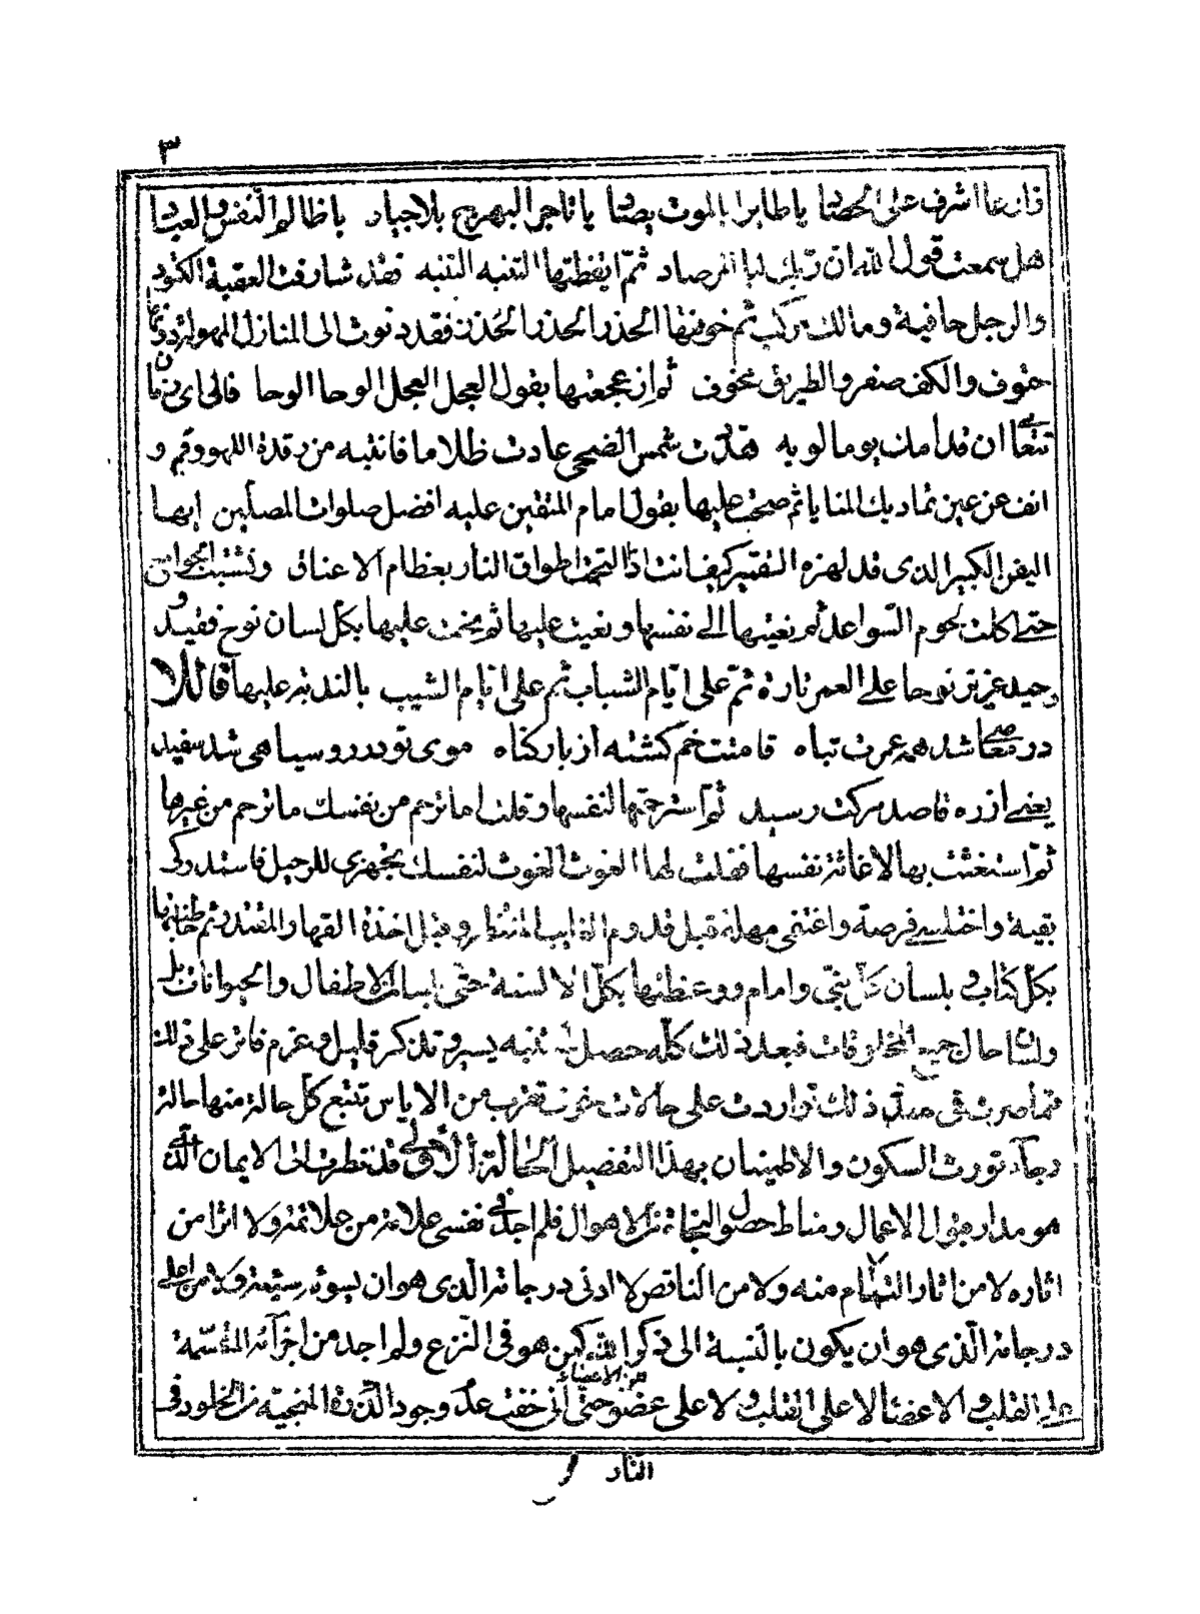 ٣
اشرف على الحصاد يا طايرا بالموت يصاد يا تاجر البهرج بلا جياد يا ظالم النفس والعباد
هل سمعت قول الله ان ربك لبالمرصاد ثم ايقظتها التنبه التنبه فقد شارفت العقبة الكئود
والرجل حافية ومالك مركب ثم خوفتها الحذر الحذر الحذر فقد دنوت الى المنازل المهولة دونها
حتوف والكف صفر والطريق مخوف ثم ازعجتها بقول العجل العجل الوحا الوحا فالى اى زمان
تتعامى ان قدامك يوما لو به هددت شمس الضحى عادت ظلاما فانتبه من رقدة اللهو وقم و
انف عن عين تماديك المنايا ثم صحت عليها بقول امام المتقين عليه افضل صلوات المصلين ايها
اليفن الكبير الذى قد لهزه القتير كيف انت اذا التحم اطواق النار بعظام الاعناق وتشبث الجوامع
حتى اكلت لحوم السواعد ثم نعيتها الى نفسها ونعيت عليها ثم نحت عليها بكل لسان نوح فقيد
وحيد عزيز نوحا على العمر تارة ثم على ايام الشباب ثم على ايام الشيب بالندبة عليها قائلا
در معاصى شد همه عمرت تباه قامتت خم كشته از بار كناه موى تو در رو سياهى شد سفيد
يعنى از ره قاصد مركت رسيد ثم استرحمتها لنفسها وقلت اما ترحم من نفسك ما ترحم من غيرها
ثم استغثت بها لاغاثة نفسها فقلت لها الغوث الغوث لنفسك تجهزى للرحيل فاستدركى
بقية واختلسى فرصة واغتنمى مهلة قبل قدوم الغايب المنتظر وقبل اخذة القهار المقتدر ثم خاطبتها
بكل كتاب وبلسان كل نبى وامام ووعظتها بكل الالسنة حتى لسان الاطفال والحيوانات بل
ولسان حال جميع المخلوقات فبعد ذلك كله حصل تنبه يسير وتذكر قليل وعزم فاتر على ذلك
فما صرت فى صدد ذلك تواردت على حالات خوف تقرب من الاياس تتبع كل حالة منها حالة
رجآء تورث السكون والاطمينان بهذا التفصيل الحالة الاولى قد نظرت الى الايمان الذى
هو مدار قبول الاعمال ومناط حصول النجاة من الاهوال فلم اجد فى نفسى علامة من علائمه ولا اثرا من
اثاره لا من اثار التام منه ولا من الناقص لا ادنى درجاته الذى هو ان يسوئه سيئته ولا من اعلى
درجاته الذى هو ان يكون بالنسبة الى ذكر الله كمن هو فى النزع ولم اجد من اجزآئه المقسمة
على القلب والاعضا لا على القلب ولا على عضو من الاعضاء حتى انى خفت عدم وجود الذرة المنجية من الخلود فى
النار